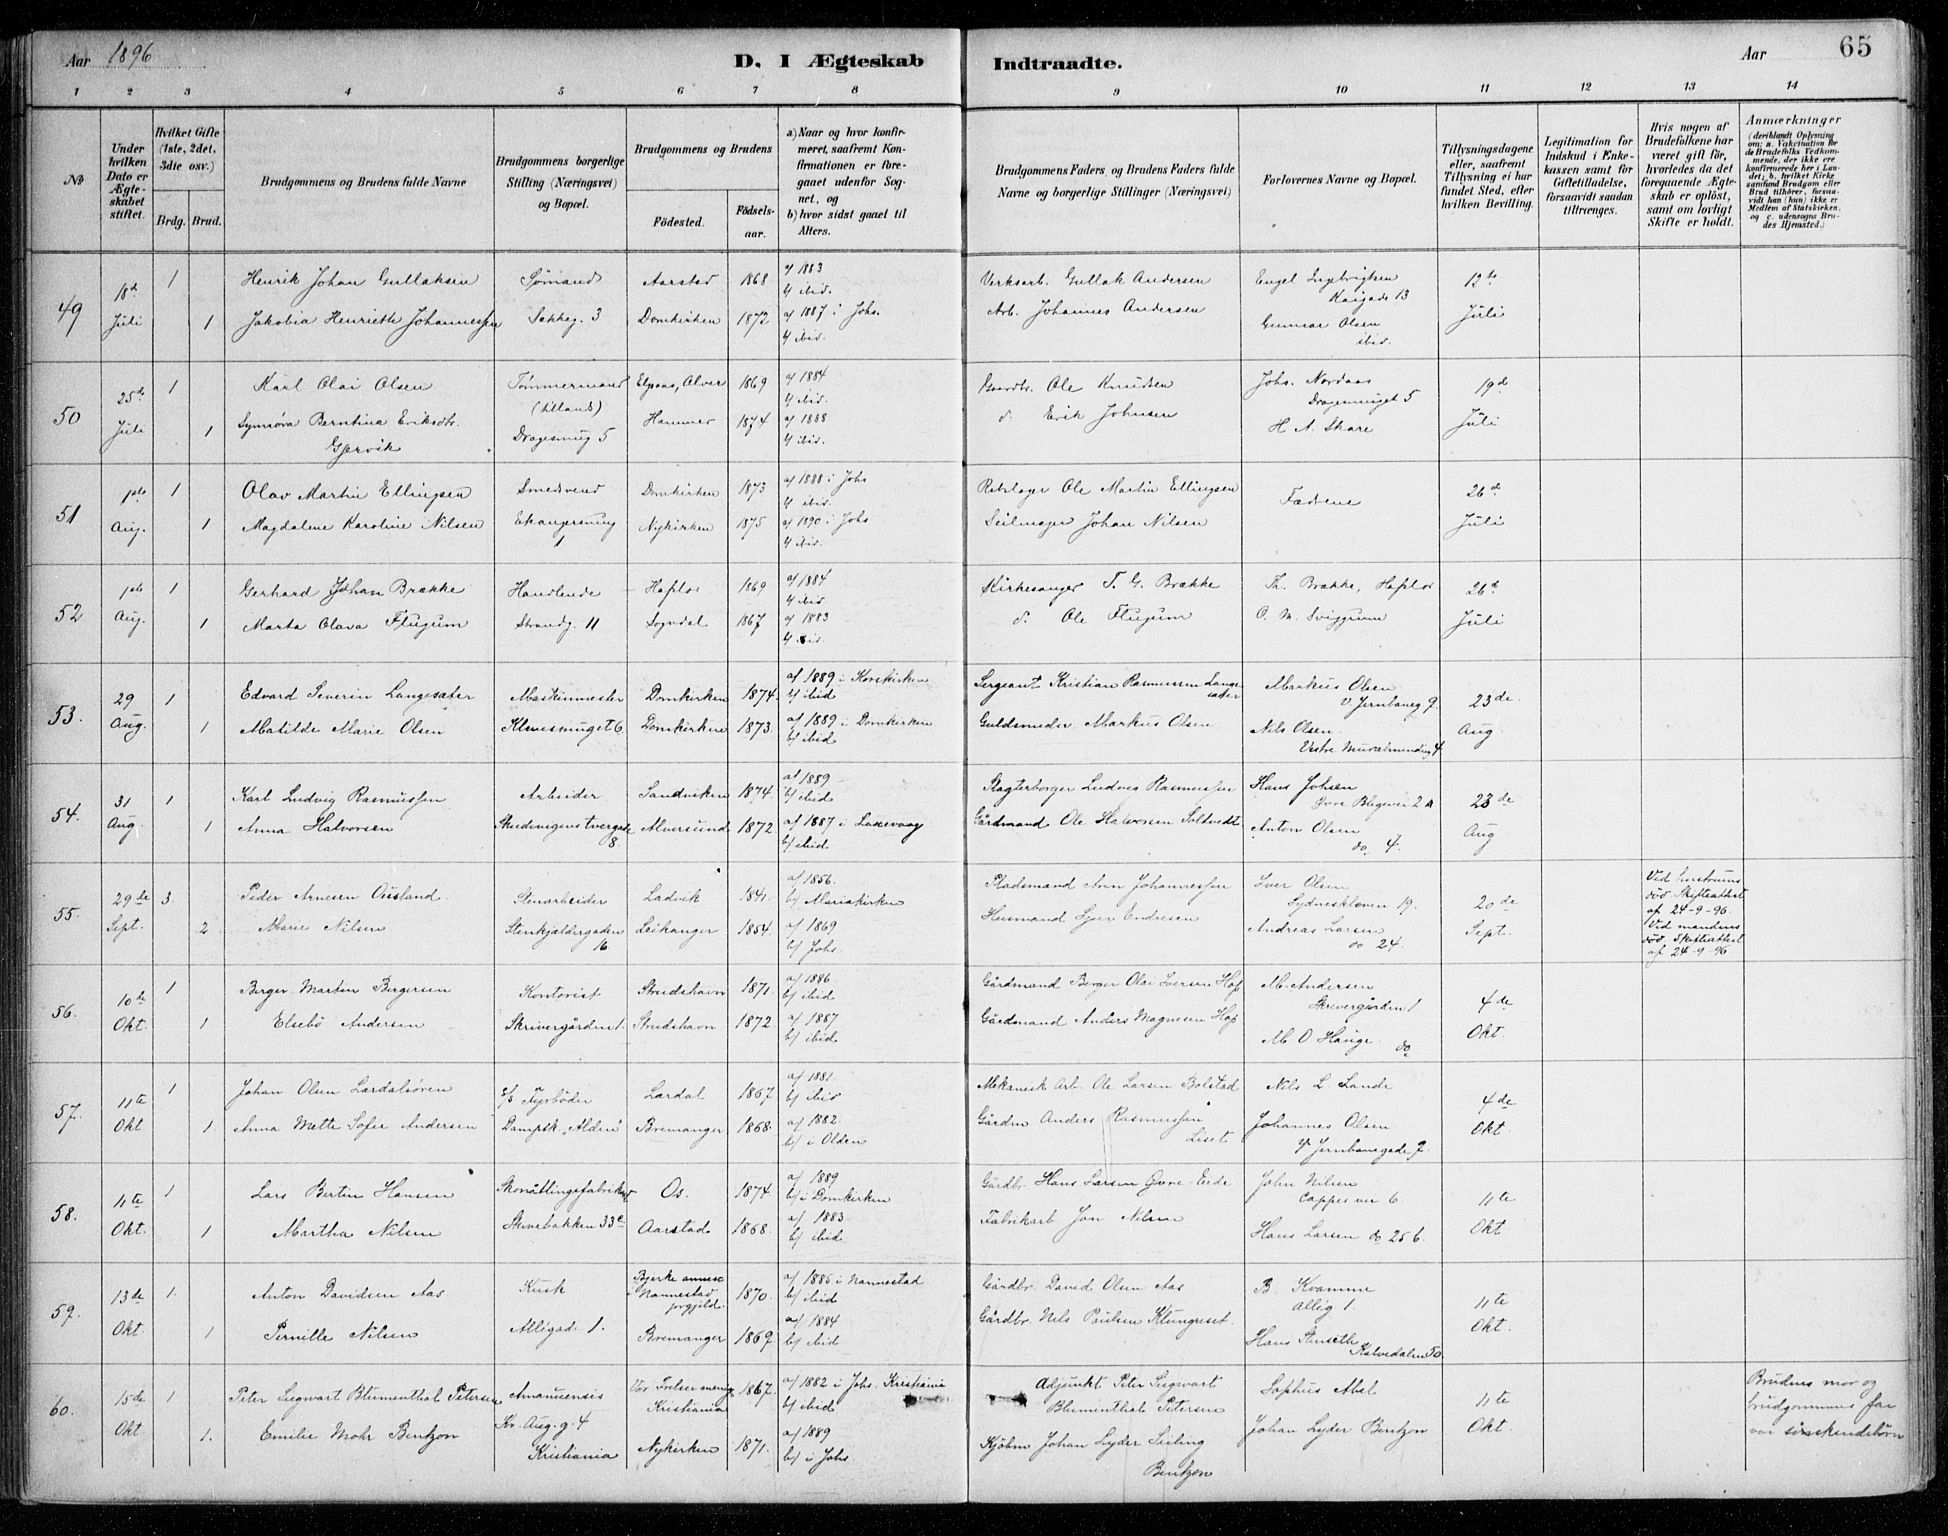 Aar 1896
D. I Ægteskab Indtraadte.
Aar 65
1 2 3 4 5 6 7 8 9 10 11 12 13 14
№
Under hvilken Dato er Ægteskabet stiftet.
Hvilket Gifte (1ste, 2det, 3die osv.)
Brdg. Brud.
Brudgommens og Brudens fulde Navne
Brudgommens borgerlige Stilling (Næringsvei) og Bopæl.
Brudgommens og Brudens
Födested. Födselsaar.
a) Naar og hvor konfirmeret, saafremt Konfirmationen er foregaaet udenfor Sognet, og
b) hvor sidst gaaet til Alters.
Brudgommens Faders, og Brudens Faders fulde Navne og borgerlige Stillinger (Næringsvei)
Forlovernes Navne og Bopæl.
Tillysningsdagene eller, saafremt Tillysning ei har fundet Sted, efter hvilken Bevilling.
Legitimation for Indskud i Enkekassen samt for Giftetilladelse, forsaavidt saadan tiltrænges.
Hvis nogen af Brudefolkene har været gift för, hvorledes da det foregaaende Ægteskab er oplöst, samt om lovligt Skifte er holdt.
Anmærkninger
(deriblandt Oplysning om: a. Vakcination for de Brudefolks Vedkommende, der ikke ere konfirmerede her i Landet; b. hvilket Kirkesamfund Brudgom eller Brud tilhörer, forsaavidt han (hun) ikke er Medlem af Statskirken, og c. udensogns Brudes Hjemsted.)
49 18de Juli 1 Henrik Johan Gullaksen Sømand Aarstad 1868 a/ 1883 b/ ibid. Verksarb. Gullak Andersen Engel Ingebrigtsen Kaigade 13 12te Juli
1 Jakobia Henriette Johannessen Sekkeg. 3 Domkirken 1872 a/ 1887 i Johs. b/ ibid. Arb. Johannes Andersen Gunnar Olsen ibid.
50 25de Juli 1 Karl Olai Olsen Tömmermand Alver 1869 a/ 1884 b/ ibid. Gaardbr. Ole Knudsen Johs. Nordaas Dragesmuget 5 19de Juli
1 Synnöva Berntina Eriksdtr. Gjervik Dragesmug 5 Hammer 1874 a/ 1888 b/ ibid. d. Erik Johnsen H. A. Skare
51 1ste Aug. 1 Olav Martin Ellingsen Smedsvend Domkirken 1873 a/ 1888 i Johs b/ ibid. Rebslager Ole Martin Ellingsen Fædrene 26de Juli
1 Magdalene Karoline Nilsen Ekangersmug 1 Nykirken 1875 a/ 1890 i Johs b/ ibid. Seilmager Johan Nilsen
52 1ste Aug. 1 Gerhard Johan Brække Handlende Hafslo 1869 a/ 1884 b/ ibid. Kirkesanger T. G. Brække Th. Brække, Hafslo 26de Juli
1 Marta Olava Flugum Strandg. 11 Sogndal 1867 a/ 1883 b/ ibid. d. Ole Flugum O. M. Sviggum
53. 29 Aug. 1 Edvard Severin Langesæter Maskinmester Domkirken 1874. a/ 1889 i Korskirken b/ ibid Sergeant Kristian Rasmussen Langesæter Markus Olsen v. Jernbaneg 9 23de Aug
1 Matilde Marie Olsen Klævesmuget 6 Domkirken 1873. a/ 1889 i Domkirken b/ ibid Guldsmeder Markus Olsen Nils Olsen Vestre Muralmending 4.
54. 31 Aug 1 Karl Ludvig Rasmussen Arbeider Sandviken 1874. a/ 1889 b/ ibid Slagterborger Ludvig Rasmussen Hans Johsen Øvre Blegevei 2a 23de Aug
1 Anna Halvorsen Skudevigens tvergade 8. Alversund 1872. a/ 1887 i Laxevaag b/ ibid Gårdmand Ole Halvorsen Soltvedt Anton Olsen do 4.
55. 29de Sept. 3 Peder Arnesen Ousland Stenarbeider Ladvik 1841. a/ 1856. b/ Mariakirken Pladsmand Arne Johannessen Iver Olsen Sydneskleven 19. 20de Sept. Ved hustruens död. Skifteattest af 24-9-96.
2 Marie Nilsen Stenkjeldergaden 16 Leikanger 1854. a/ 1869 b/ Johs. Husmand Sjur Endresen Andreas Larsen do 24. Ved mandens död. Skifteattest af 24-9-96
56. 10de Okt. 1 Berger Martin Bergersen Kontorist Strudshavn 1871. a/ 1886. b/ ibid Gårdmand Berger Olai Iversen Hop M. Andersen Skrivergården 1 4de Okt.
1 Elsebö Andersen Skrivergården 1. Strudshavn 1872. a/ 1887 b/ ibid Gårdmand Anders Magnesen Hop M O Hauge do
57. 11te Okt 1 Johan Olsen Lærdalsören Fyrböder Lærdal 1867 a/ 1881 b/ ibid Mekanisk Arb. Ole Larsen Bolstad Nils L. Lande 4de Okt.
1. Anna Mette Sofie Andersen Dampsk. "Alden" Bremanger 1868. a/ 1882. b/ i Olden Gårdm Anders Rasmussen Liset. Johannes Olsen Jernbanegade 9.
58. 11te Okt. 1 Lars Bertin Hansen Os. 1874. a/ 1889 b/ i Domkirken Gårdbr. Hans Larsen Øvre-Eide John Nilsen Cappes vei 6. 11te Okt
1 Martha Nilsen Skivebakken 33c Aarstad 1868. a/ 1883. b/ ibid Fabrikarb Jon Nilsen Hans Larsen do 25 b.
59. 13de Okt. 1. Anton Davidsen Aas. Kusk Bjerke annex i Nannestad prgjeld. 1870. a/ 1885 i Nannestad b/ ibid Gårdbr. David Olsen Aas B. Kvamme Allég 1. 11te Okt.
1 Pernille Nilsen Allégade 1. Bremanger 1869 a/ 1884 b/ ibid Gårdbr. Nils Paulsen Klungeset. Hans Stenseth Kalvedalen 50
60. 15de Okt 1 Peter Siegwart Blumenthal Petersen Amanuensis Vor Frelser menig. Kristiania 1867. a/ 1882 i Johs. Kristiania b/ ibid Adjunkt Peter Siegwart Blumenthal Petersen Sophus Abel 11te Okt. Brudens mor og brudgommens far var söskendebörn
1. Emilie Mohr Bentzon Kr. Aug. g. 4 Kristiania Nykirken 1871. a/ 1889 b/ i Johs. Kjöbm Johan Lyder Seiling Bentzon Johan Lyder Bentzon